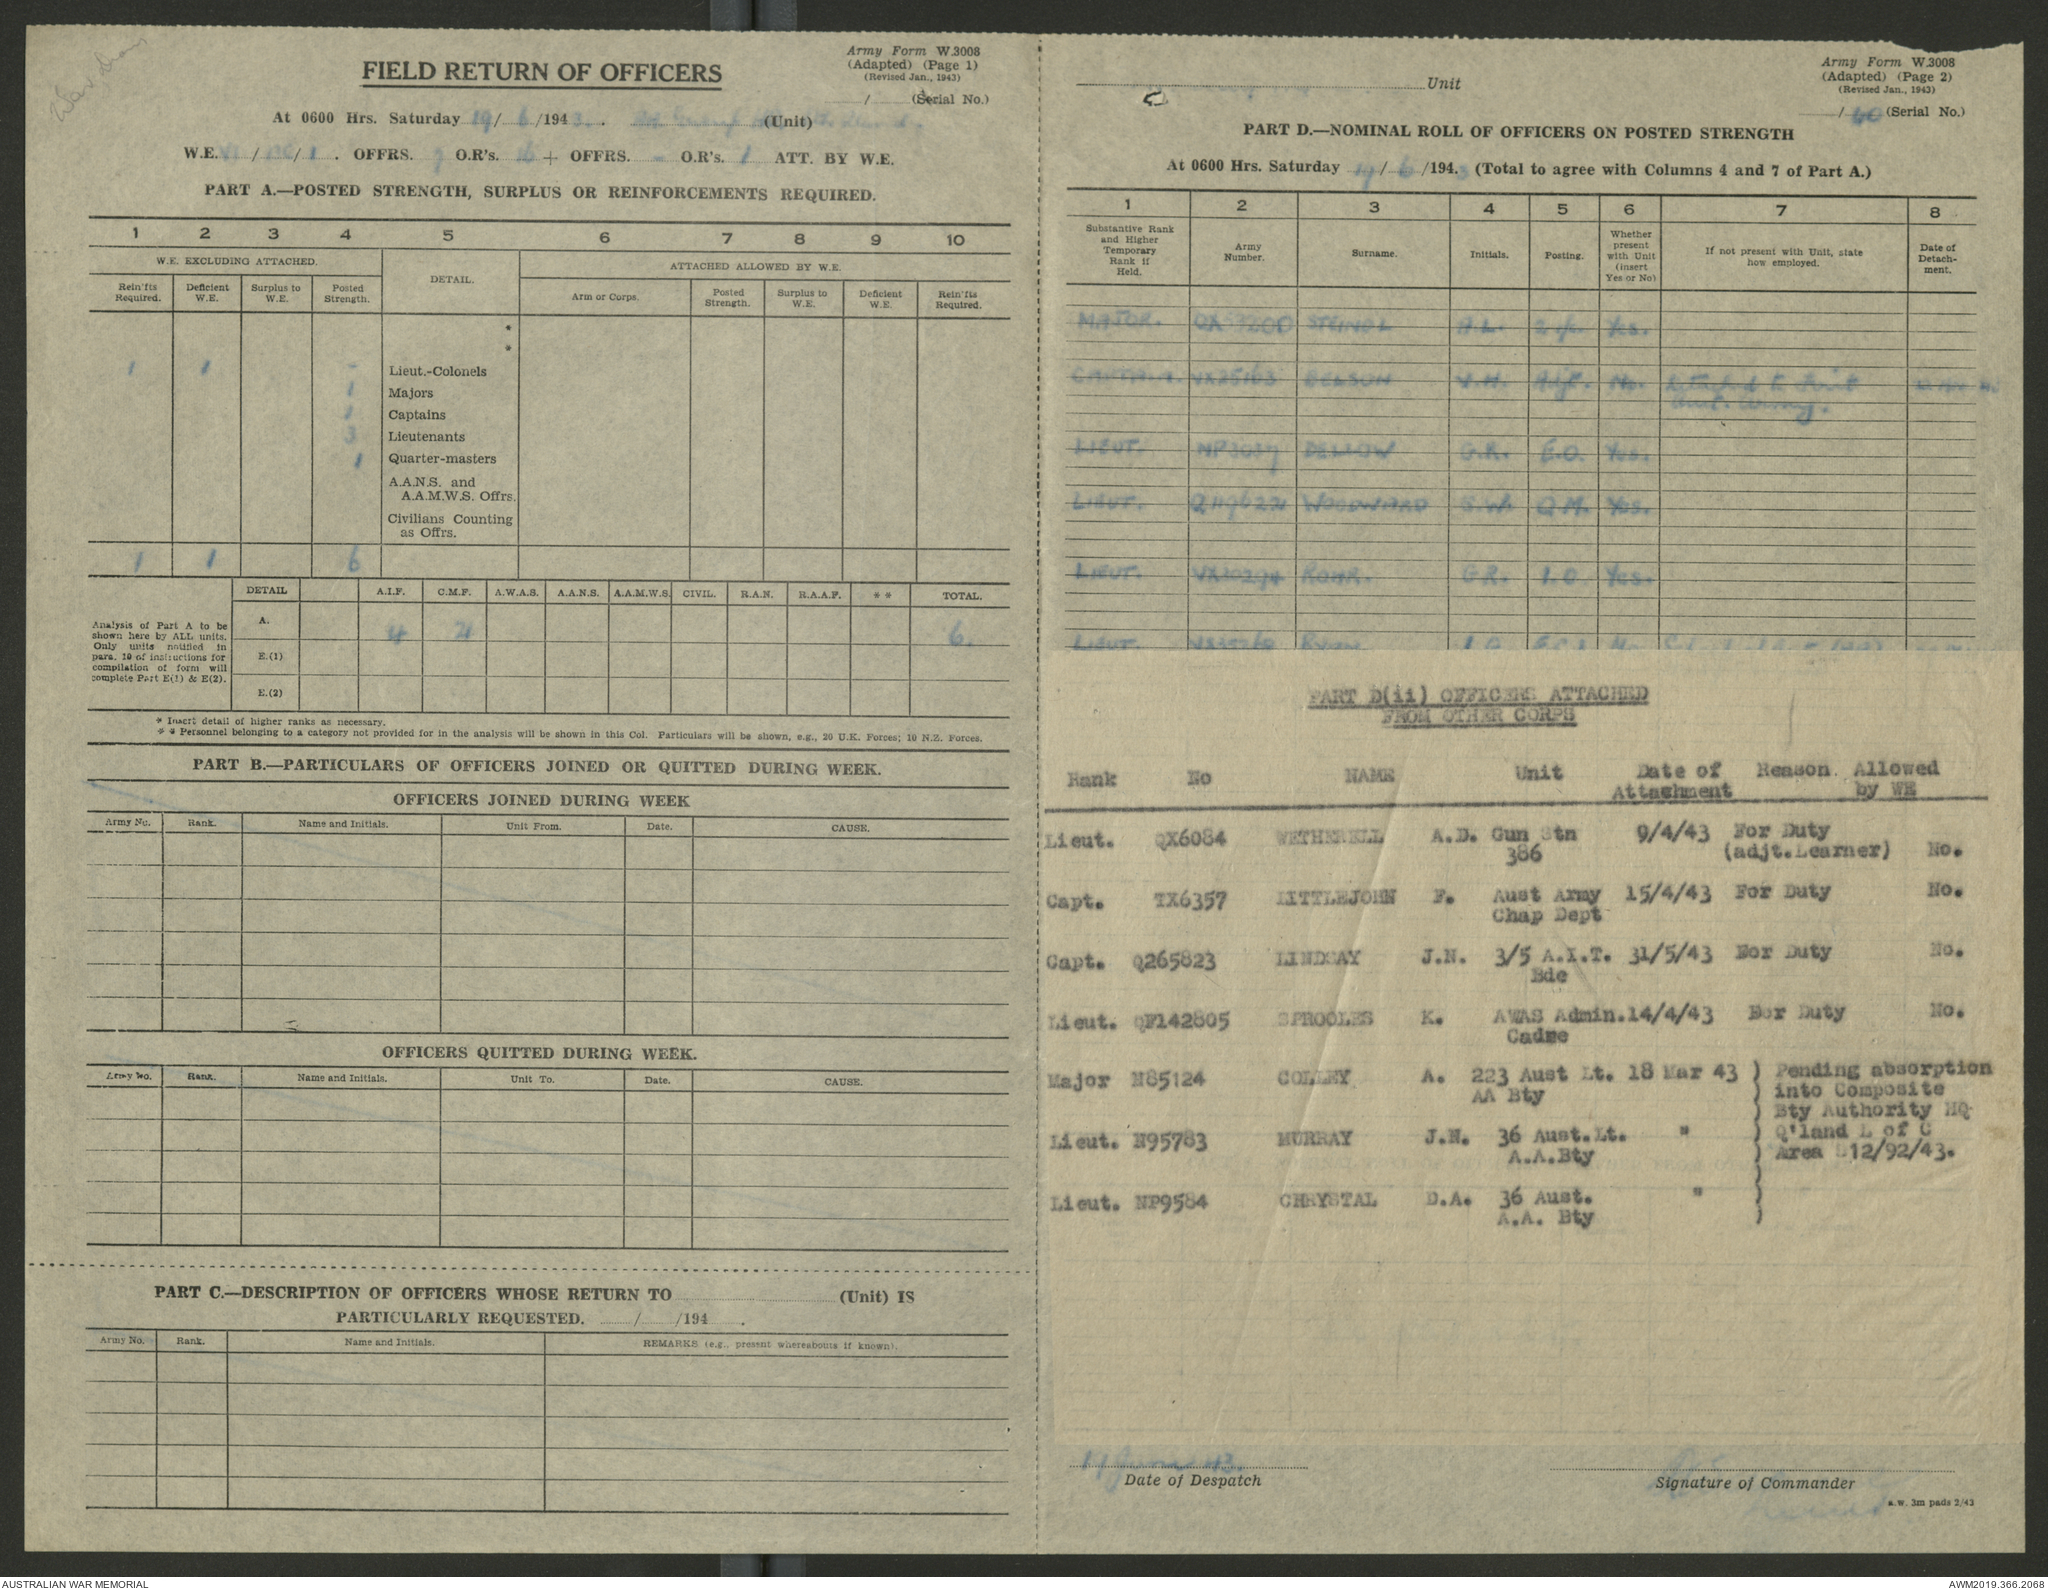 FIELD RETURN OF OFFICERS
Army Form W.3008
(Adapted) (Page 1)
(Revised Jan., 1943)
/ (Serial No.)
At 0600 Hrs. Saturday 19/6/1943. (Unit)
W.E. / /1. OFFRS. 9 O.R's. 16 + OFFRS. - O.R's. 1 ATT. BY W.E.
PART A.—POSTED STRENGTH, SURPLUS OR REINFORCEMENTS REQUIRED.
1 2 3 4 5 6 7 8 9 10
W.E. EXCLUDING ATTACHED. DETAIL. ATTACHED ALLOWED BY W.E.
Rein'fts Required. Deficient W.E. Surplus to W.E. Posted Strength. Arm or Corps. Posted Strength. Surplus to W.E. Deficient W.E. Rein'fts Required.
*
*
1 1 - Lieut.-Colonels
1 Majors
1 Captains
3 Lieutenants
1 Quarter-masters
A.A.N.S. and
A.A.M.W.S. Offrs.
Civilians Counting
as Offrs.
1 1 6
DETAIL A.I.F. C.M.F. A.W.A.S. A.A.N.S. A.A.M.W.S. CIVIL. R.A.N. R.A.A.F. * * TOTAL.
Analysis of Part A to be
shown here by ALL units.
Only units notified in
para. 10 of instructions for
compilation of form will
complete Part E(1) & E(2).
A. 4 2 6.
E.(1)
E.(2)
* Insert detail of higher ranks as necessary.
* * Personnel belonging to a category not provided for in the analysis will be shown in this Col. Particulars will be shown, e.g., 20 U.K. Forces; 10 N.Z. Forces.
PART B.—PARTICULARS OF OFFICERS JOINED OR QUITTED DURING WEEK.
OFFICERS JOINED DURING WEEK
Army No. Rank. Name and Initials. Unit From. Date. CAUSE.
OFFICERS QUITTED DURING WEEK.
Army No. Rank. Name and Initials. Unit To. Date. CAUSE.
PART C.—DESCRIPTION OF OFFICERS WHOSE RETURN TO (Unit) IS
PARTICULARLY REQUESTED. / /194 .
Army No. Rank. Name and Initials. REMARKS (e.g., present whereabouts if known).
Army Form W.3008
(Adapted) (Page 2)
(Revised Jan., 1943)
Unit
/60 (Serial No.)
PART D.—NOMINAL ROLL OF OFFICERS ON POSTED STRENGTH
At 0600 Hrs. Saturday 19/6/1943 (Total to agree with Columns 4 and 7 of Part A.)
1 2 3 4 5 6 7 8
Substantive Rank and Higher Temporary Rank if Held. Army Number. Surname. Initials. Posting. Whether present with Unit (insert Yes or No) If not present with Unit, state how employed. Date of Detachment.
MAJOR. STEINDL A.L. 2 i/c Yes.
CAPTAIN. VX25163 V.H. Adjt. No. Attached to First
Aust. Army.
LIEUT. NP3037 DELLOW G.R. E.O. Yes.
LIEUT. WOODWARD S.W. Q.M. Yes.
LIEUT. VX20294 ROHR. G.R. I.O. Yes.
LIEUT. RYAN No.
PART D(ii) OFFICERS ATTACHED
FROM OTHER CORPS
Rank No NAME Unit Date of Attachment Reason. Allowed by WE
Lieut. QX6084 WETHERELL A.D. Gun Stn 9/4/43 For Duty
386 (adjt.Learner) No.
Capt. TX6357 LITTLEJOHN F. Aust Army 15/4/43 For Duty No.
Chap Dept
Capt. Q265823 LINDSAY J.N. 3/5 A.I.T. 31/5/43 For Duty No.
Bde
Lieut. QF142805 SPROOLES K. AWAS Admin. 14/4/43 For Duty No.
Cadre
Major N85124 COLLEY A. 223 Aust Lt. 18 Mar 43 ) Pending absorption
AA Bty ) into Composite
) Bty Authority HQ
Lieut. N95783 MURRAY J.N. 36 Aust.Lt. " ) Q'land L of C
A.A.Bty ) Area 12/92/43.
Lieut. NP9584 CHRYSTAL D.A. 36 Aust. " )
A.A. Bty )
19 June 43.
Date of Despatch
Signature of Commander
a.w. 3m pads 2/43
AUSTRALIAN WAR MEMORIAL
AWM2019.366.2068